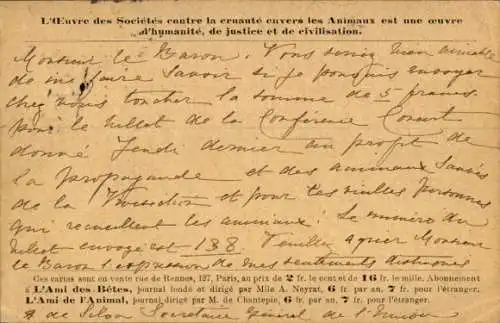 L'Œuvre des Sociétés contre la cruauté envers les Animaux est une œuvre
d'humanité, de justice et de civilisation.
Monsieur le Baron. Vous seriez bien aimable
de me faire savoir si je pourrais envoyer
chez vous toucher la somme de 5 francs
pour le billet de la Conférence Concert
donné Jeudi dernier au profit de
la propagande et des animaux sauvés
de la Vivisection et pour les vieilles personnes
qui recueillent les animaux. Le numéro du
billet envoyé est 138. Veuillez agréer Monsieur
le Baron l'expression de mes sentiments distingués
Ces cartes sont en vente rue de Rennes, 127, Paris, au prix de 2 fr. le cent et de 16 fr. le mille. Abonnement
à L'Ami des Bêtes, journal fondé et dirigé par Mlle A. Neyrat, 6 fr. par an, 7 fr. pour l'étranger.
L'Ami de l'Animal, journal dirigé par M. de Chantepie, 6 fr. par an, 7 fr. pour l'étranger.
A de Secrétaire Général de l'Union